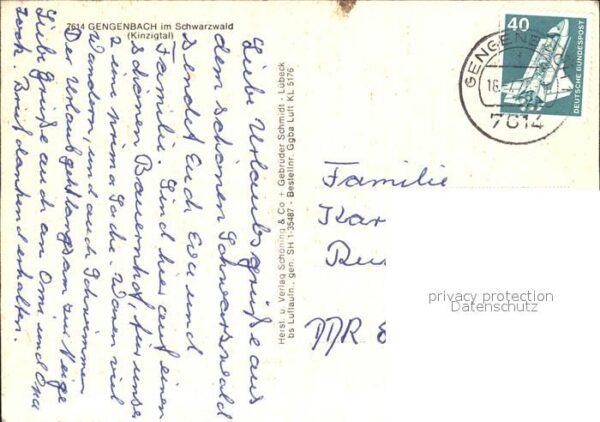 7614 GENGENBACH im Schwarzwald
(Kinzigtal)
Liebe Urlaubsgrüße aus
dem schönen Schwarzwald
sendet Euch Eva und
Familie. Sind hier auf einem
schönen Bauernhof, für unse
eine prima Sache. Waren viel
Wandern, und auch Schwimmen
Der Urlaub geht langsam zur Neige
Liebe Grüße auch an Omi und Opa
Brief dankend erhalten.
Herst. u. Verlag Schöning & Co + Gebrüder Schmidt · Lübeck
bs Luftaufn., gen. SH 1-35487 - Bestellnr. Ggba Luft KL 5176
40
DEUTSCHE BUNDESPOST
GENGENB
18
7614
Familie
Kar
DDR
privacy protection
Datenschutz